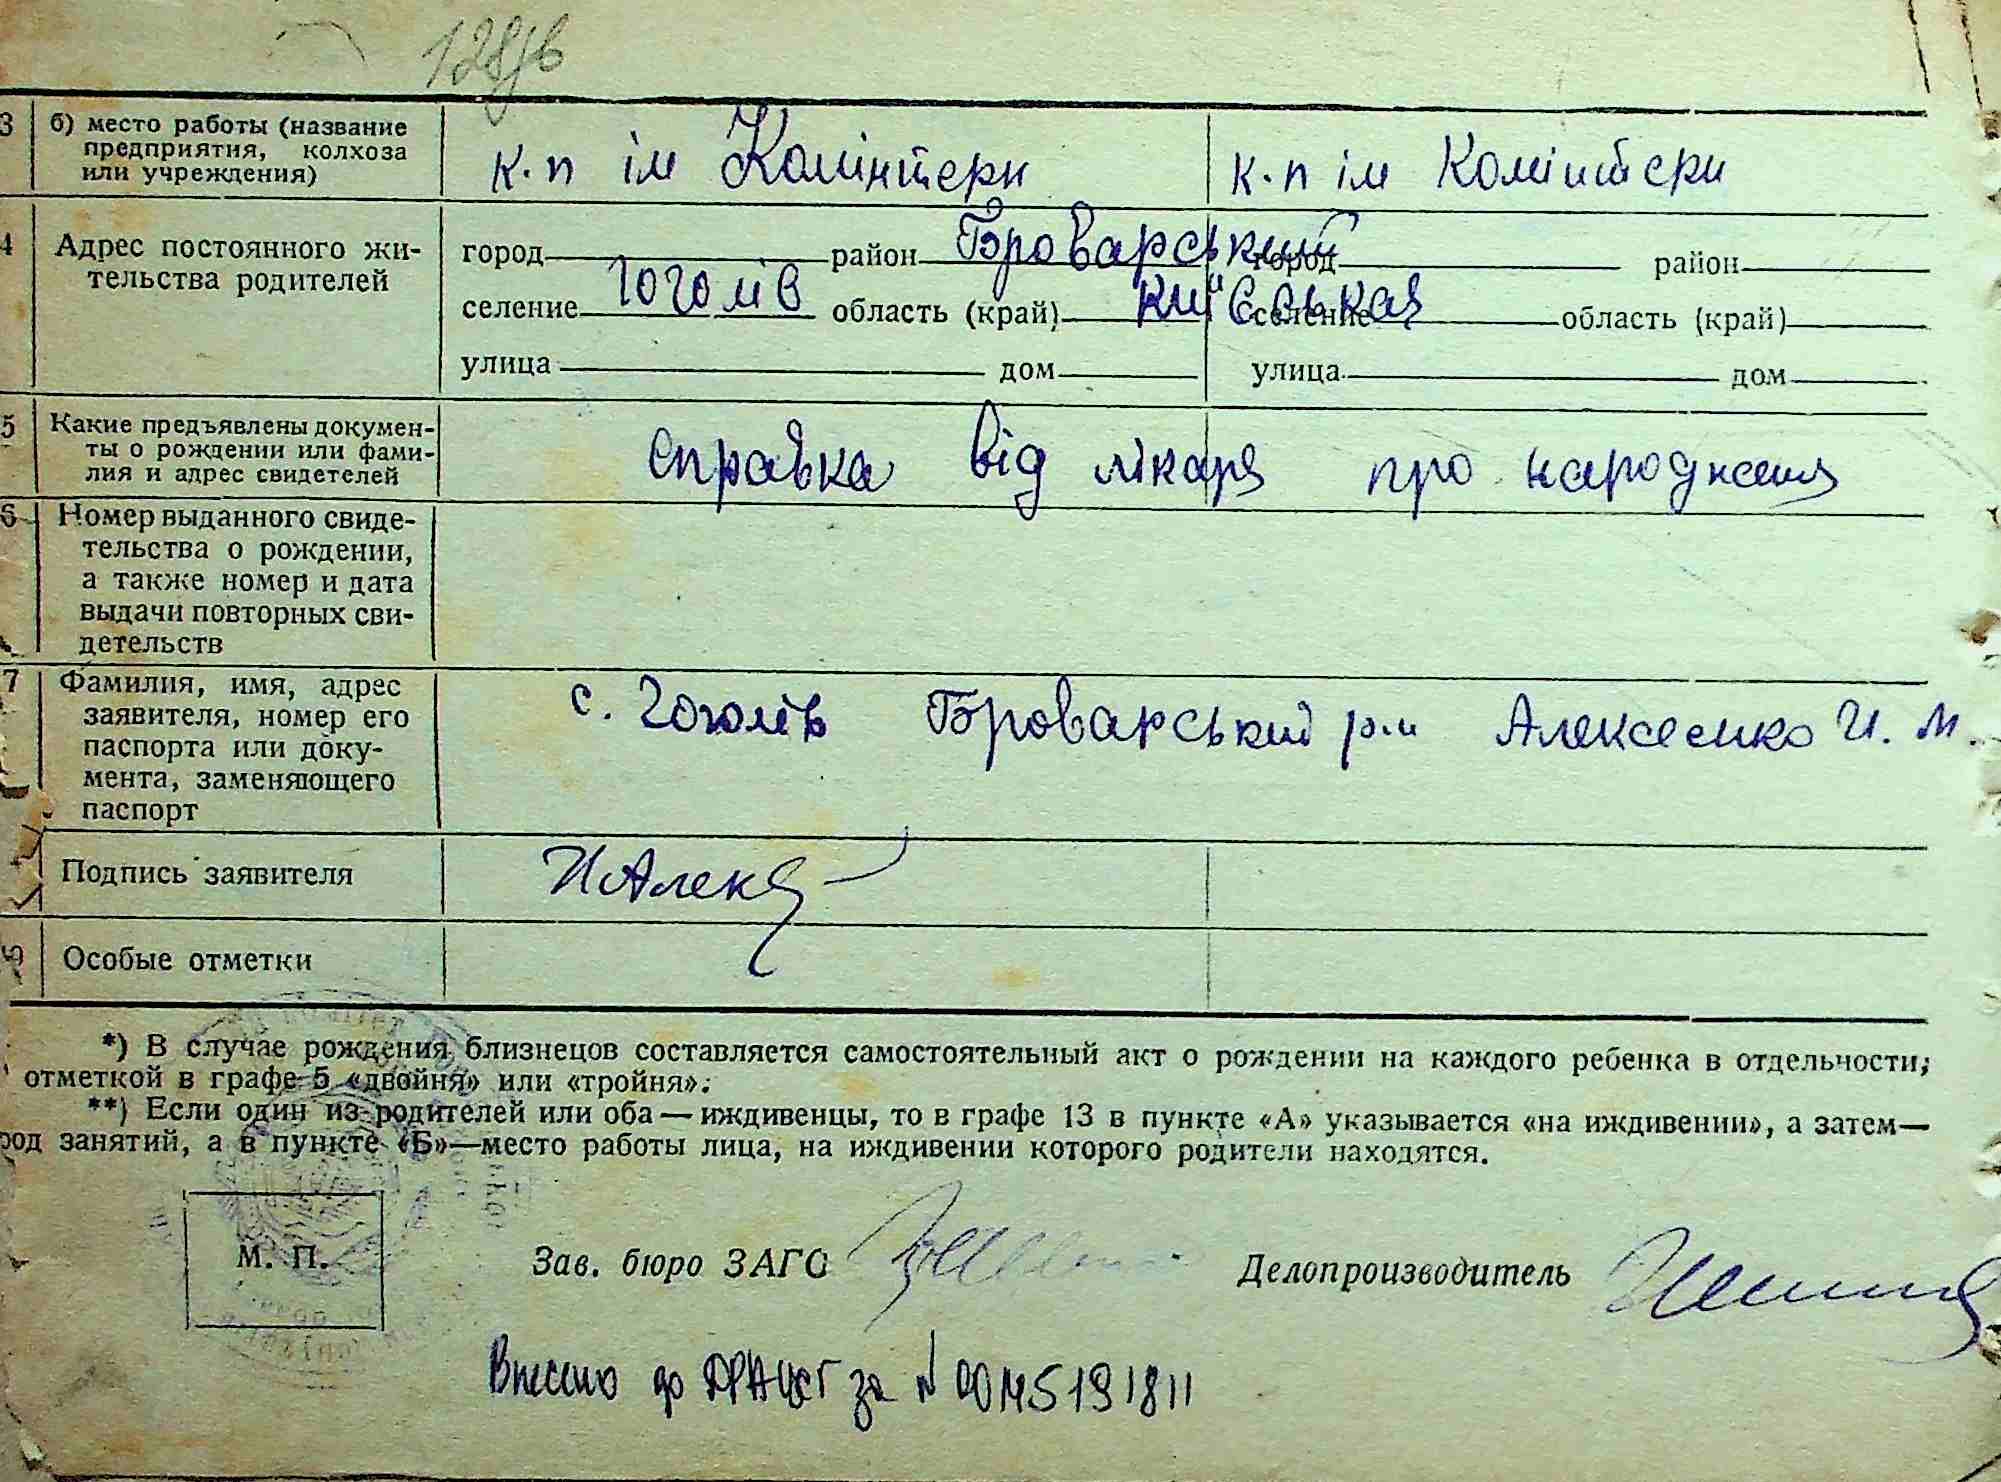 128зв
3 б) место работы (название
предприятия, колхоза
или учреждения)
к.п ім Комінтерн
к.п ім Комінтерн
4 Адрес постоянного жи-
тельства родителей
город район Броварський
селение Гоголів область (край) Київська
улица дом
город район
селение область (край)
улица дом
5 Какие предъявлены докумен-
ты о рождении или фами-
лия и адрес свидетелей
справка від лікаря про народження
6 Номер выданного свиде-
тельства о рождении,
а также номер и дата
выдачи повторных сви-
детельств
7 Фамилия, имя, адрес
заявителя, номер его
паспорта или доку-
мента, заменяющего
паспорт
с. Гоголів Броварський р-н Алексеенко И. М.
Подпись заявителя
ИАлекс
Особые отметки
*) В случае рождения близнецов составляется самостоятельный акт о рождении на каждого ребенка в отдельности,
отметкой в графе 5 «двойня» или «тройня».
**) Если один из родителей или оба — иждивенцы, то в графе 13 в пункте «А» указывается «на иждивении», а затем—
род занятий, а в пункте «Б»—место работы лица, на иждивении которого родители находятся.
М. П.
Зав. бюро ЗАГС
Делопроизводитель
Внесено до ДРАЦСГ за № 00145191811